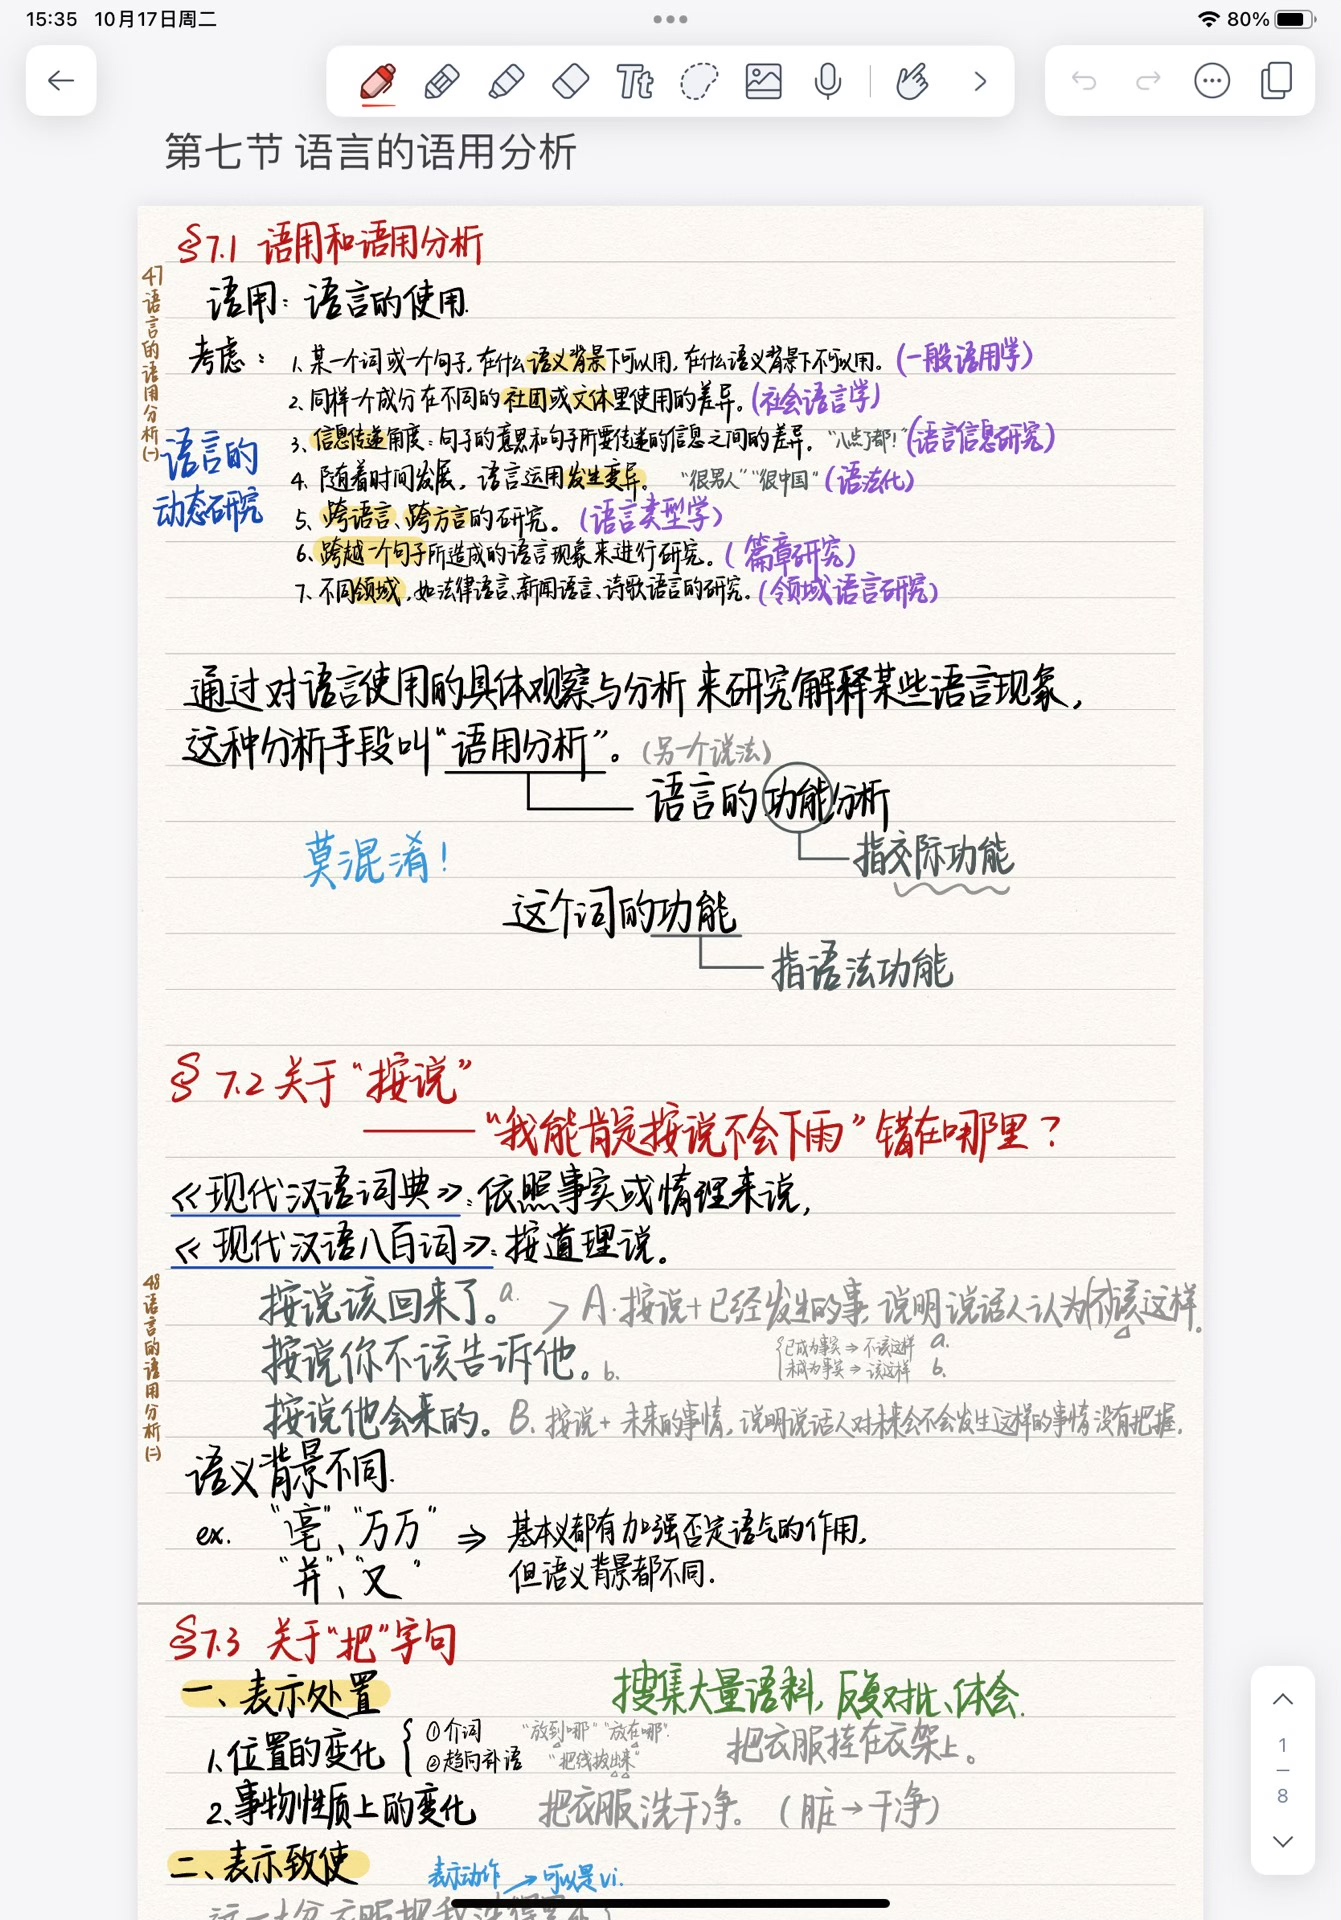 15:35 10月17日周二
80%
Tt
第七节 语言的语用分析
§7.1 语用和语用分析
47 语言的语用分析(一)
语用：语言的使用.
考虑：
1、某一个词或一个句子，在什么语义背景下可以用，在什么语义背景下不可以用。(一般语用学)
2、同样一个成分在不同的社团或文体里使用的差异。(社会语言学)
3、信息传递角度：句子的意思和句子所要传递的信息之间的差异。“八点了都！”(语言信息研究)
语言的
动态研究
4、随着时间发展，语言运用发生变异。“很男人”“很中国”(语法化)
5、跨语言、跨方言的研究。(语言类型学)
6、跨越一个句子所造成的语言现象来进行研究。(篇章研究)
7、不同领域，如法律语言、新闻语言、诗歌语言的研究。(领域语言研究)
通过对语言使用的具体观察与分析 来研究解释某些语言现象，
这种分析手段叫“语用分析”。(另一个说法)
语言的功能分析
莫混淆！
指交际功能
这个词的功能
指语法功能
§7.2 关于“按说”
——“我能肯定按说不会下雨”错在哪里？
《现代汉语词典》：依照事实或情理来说，
《现代汉语八百词》：按道理说。
48 语言的语用分析(二)
按说该回来了。a. > A.按说+已经发生的事，说明说话人认为(不)该这样.
按说你不该告诉他。b.
已成为事实⇒不该这样 a.
未成为事实⇒该这样 b.
按说他会来的。B. 按说+未来的事情，说明说话人对未来会不会发生这样的事情没有把握.
语义背景不同.
ex. “毫”、“万万” ⇒ 基本义都有加强否定语气的作用，
“并”、“又” 但语义背景都不同.
§7.3 关于“把”字句
一、表示处置
搜集大量语料，反复对比、体会.
1.位置的变化 ①介词 “放到哪”“放在哪”.
②趋向补语 “把钱拔出来”
把衣服挂在衣架上。
2、事物性质上的变化 把衣服洗干净。(脏→干净)
二、表示致使
表示动作→可以是vi.
1
8